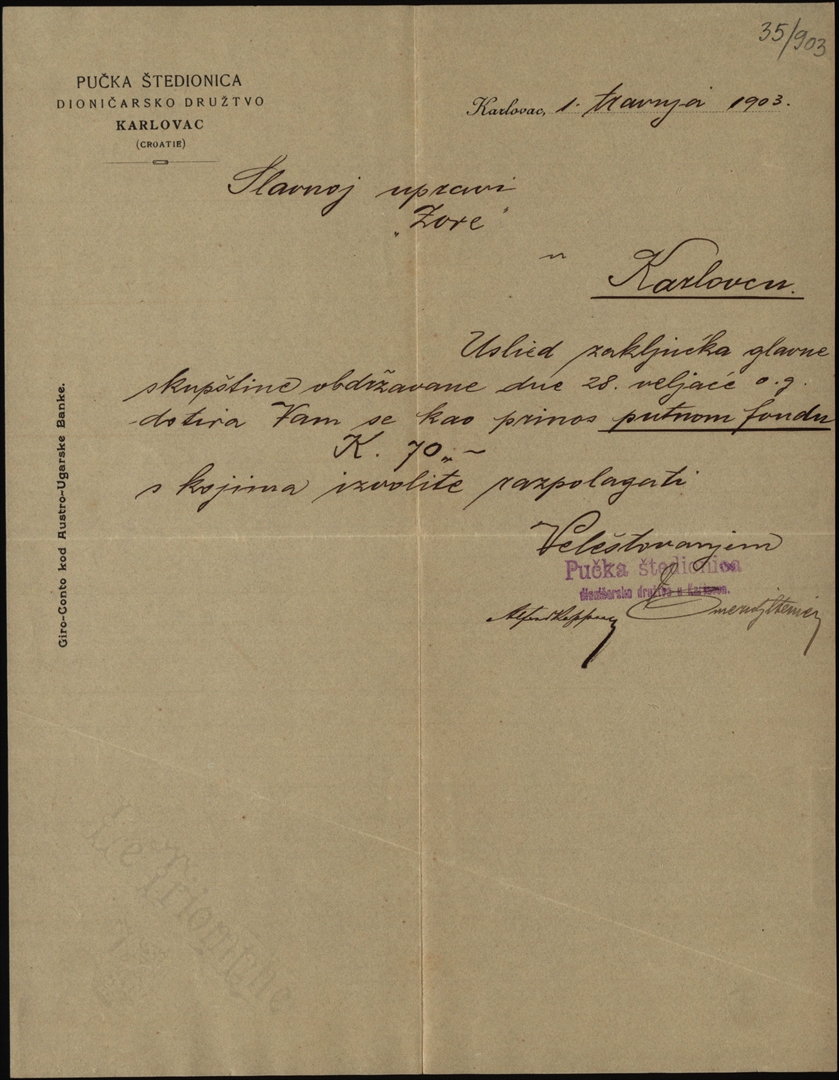 35/903
PUČKA ŠTEDIONICA
DIONIČARSKO DRUŽTVO
KARLOVAC
(CROATIE)
Karlovac, 1. travnja 1903.
Slavnoj upravi
„Zore"
u
Karlovcu.
Uslied zaključka glavne
skupštine obdržavane dne 28. veljače o.g.
dotira Vam se kao prinos putnom fondu
K. 70„-
s kojima izvolite razpolagati
Veleštovanjem
Pučka štedionica
dioničarsko družtvo u Karlovcu.
Giro-Conto kod Austro-Ugarske Banke.
Le Triomphe